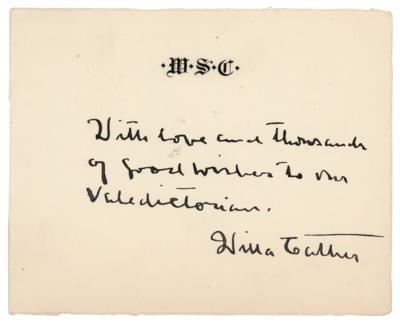 ·W·S·C·
With love and thousands
of good wishes to our
Valedictorian.
Willa Cather